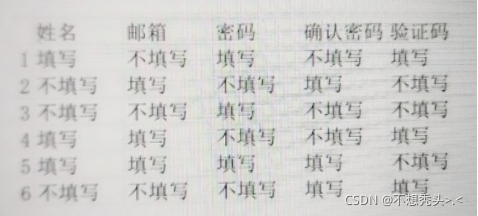 姓名 邮箱 密码 确认密码 验证码
1 填写 不填写 填写 不填写 填写
2 不填写 填写 不填写 填写 不填写
3 不填写 不填写 填写 不填写 不填写
4 填写 填写 不填写 不填写 填写
5 填写 填写 填写 填写 不填写
6 不填写 不填写 不填写 填写 填写
CSDN @不想秃头>.<